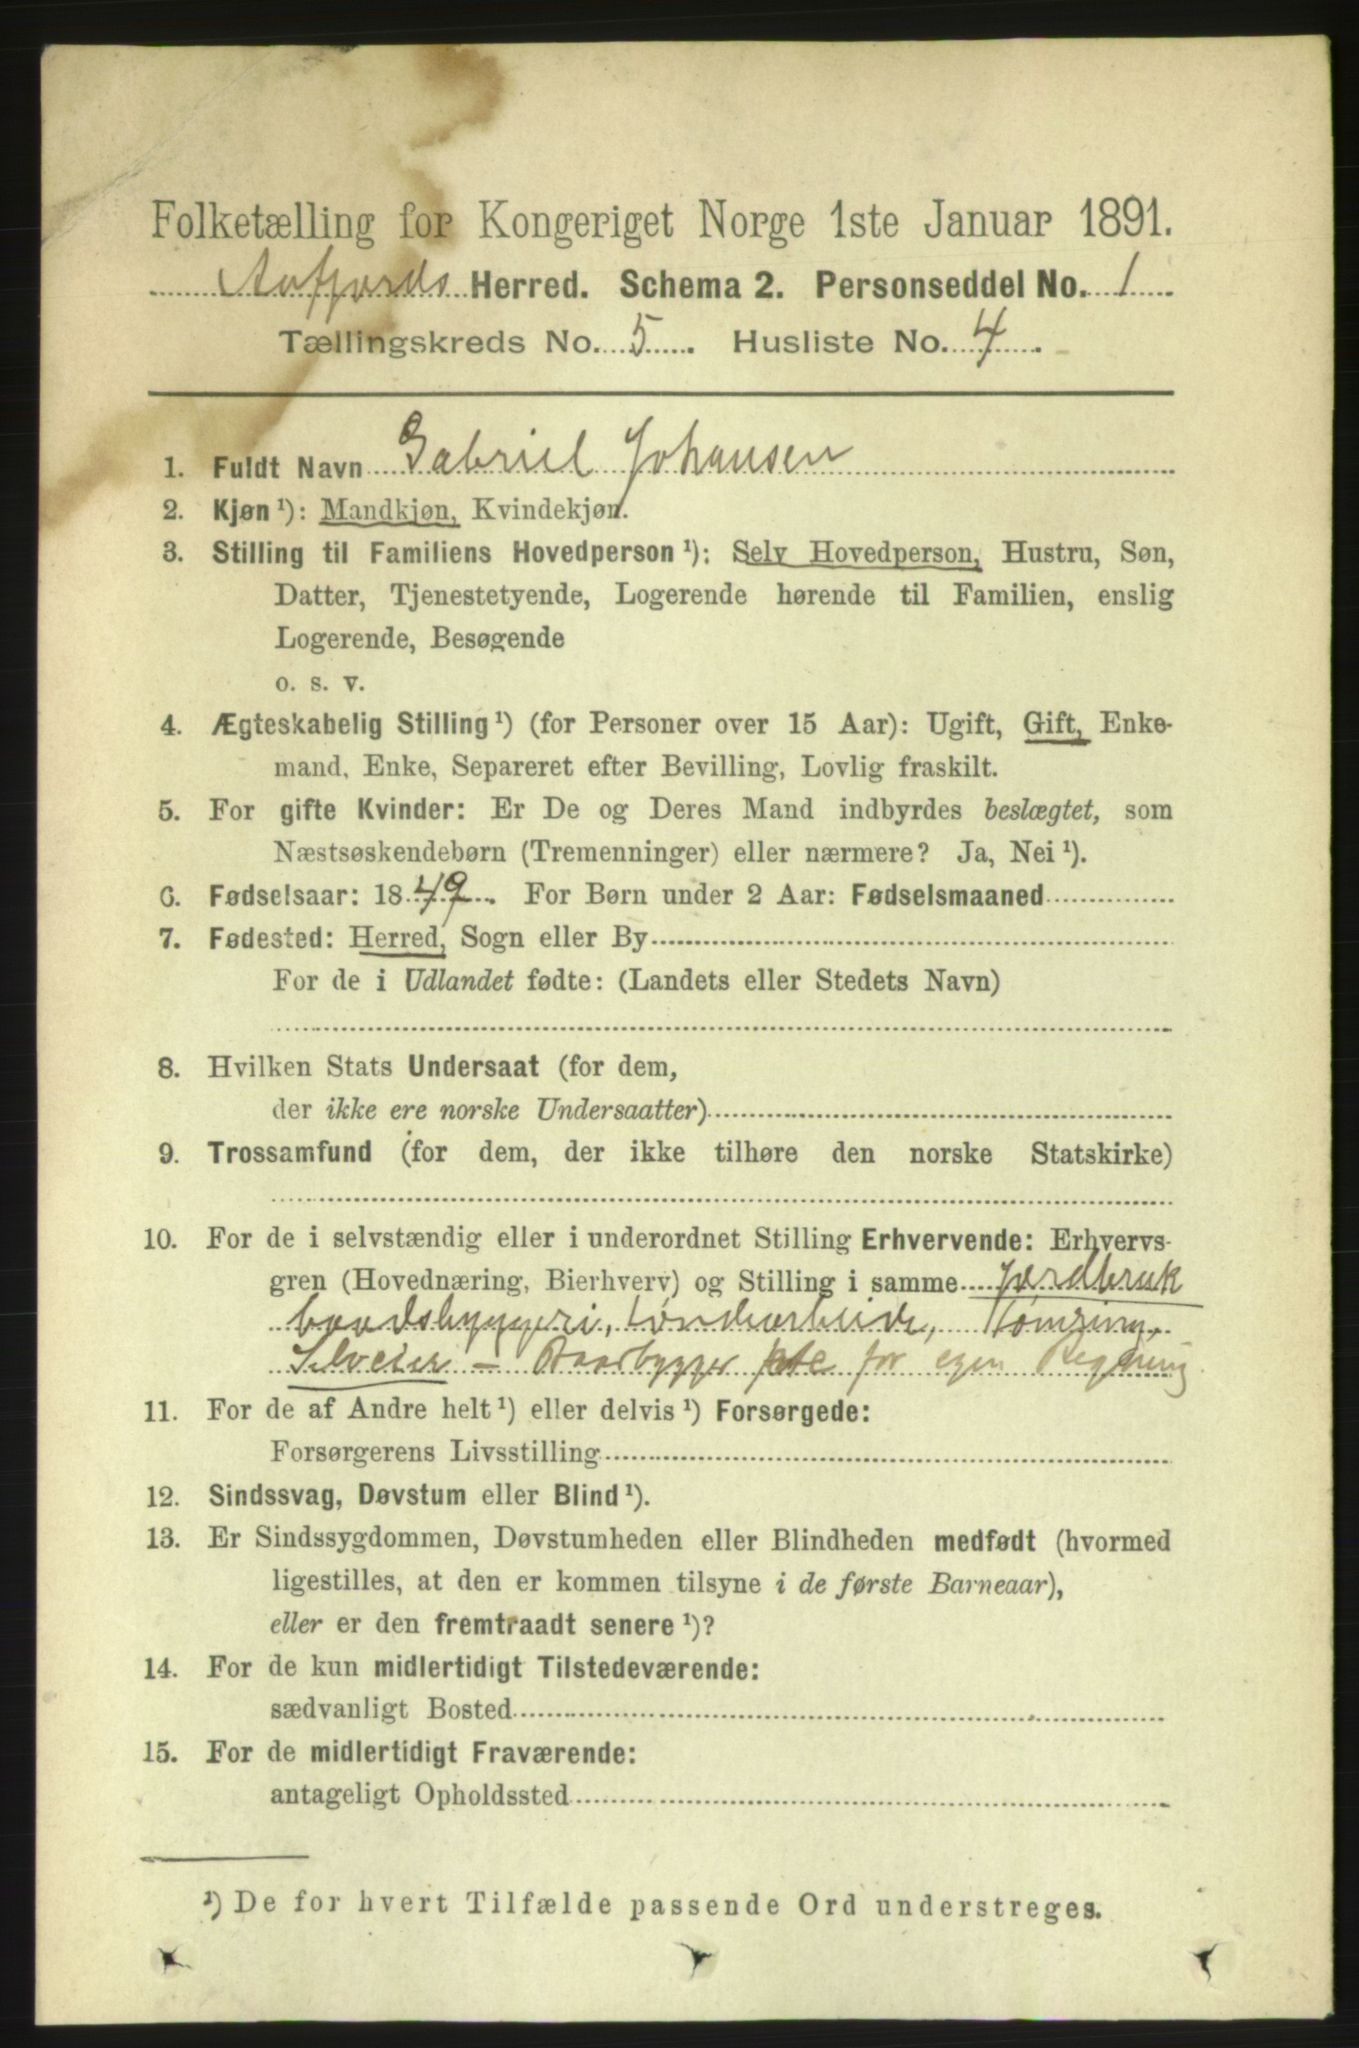 Folketælling for Kongeriget Norge 1ste Januar 1891.
Aafjords Herred. Schema 2. Personseddel No. 1
Tællingskreds No. 5. Husliste No. 4.
1. Fuldt Navn Gabriel Johansen
2. Kjøn ¹): Mandkjøn, Kvindekjøn.
3. Stilling til Familiens Hovedperson ¹): Selv Hovedperson, Hustru, Søn,
Datter, Tjenestetyende, Logerende hørende til Familien, enslig
Logerende, Besøgende
o. s. v.
4. Ægteskabelig Stilling ¹) (for Personer over 15 Aar): Ugift, Gift, Enke-
mand, Enke, Separeret efter Bevilling, Lovlig fraskilt.
5. For gifte Kvinder: Er De og Deres Mand indbyrdes beslægtet, som
Næstsøskendebørn (Tremenninger) eller nærmere? Ja, Nei ¹).
6. Fødselsaar: 1849. For Børn under 2 Aar: Fødselsmaaned
7. Fødested: Herred, Sogn eller By
For de i Udlandet fødte: (Landets eller Stedets Navn)
8. Hvilken Stats Undersaat (for dem,
der ikke ere norske Undersaatter)
9. Trossamfund (for dem, der ikke tilhøre den norske Statskirke)
10. For de i selvstændig eller i underordnet Stilling Erhvervende: Erhvervs-
gren (Hovednæring, Bierhverv) og Stilling i samme Jordbruk
baadsbyggeri,
Selveier - Baatbygger for egen Regning
11. For de af Andre helt ¹) eller delvis ¹) Forsørgede:
Forsørgerens Livsstilling
12. Sindssvag, Døvstum eller Blind ¹).
13. Er Sindssygdommen, Døvstumheden eller Blindheden medfødt (hvormed
ligestilles, at den er kommen tilsyne i de første Barneaar),
eller er den fremtraadt senere ¹)?
14. For de kun midlertidigt Tilstedeværende:
sædvanligt Bosted
15. For de midlertidigt Fraværende:
antageligt Opholdssted
¹) De for hvert Tilfælde passende Ord understreges.